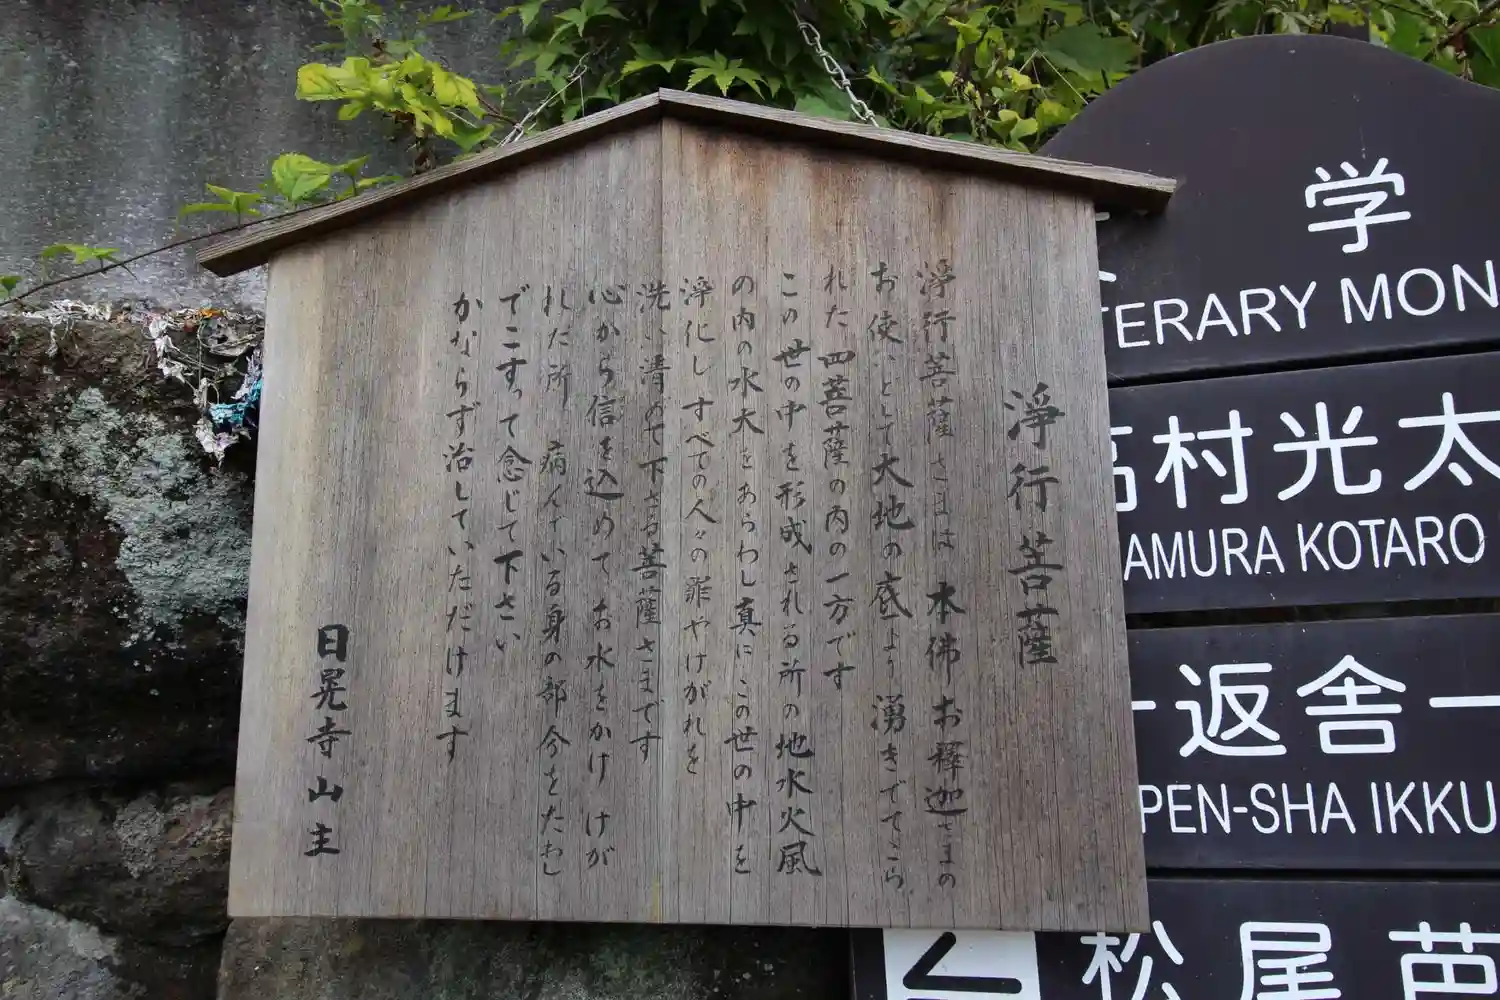 淨行菩薩
淨行菩薩さまは本佛お釋迦さまの
お使いとして大地の底より湧きでてこら
れた四菩薩の内の一方です
この世の中を形成される所の地水火風
の内の水大をあらわし真にこの世の中を
浄化しすべての人々の罪やけがれを
洗い清めて下さる菩薩さまです
心から信を込めてお水をかけけが
れた所病んでいる身の部分をたわし
でこすって念じて下さい
かならず治していただけます
日晃寺山主
学
TERARY MON
高村光太
AMURA KOTARO
一返舎一
PEN-SHA IKKU
松尾芭